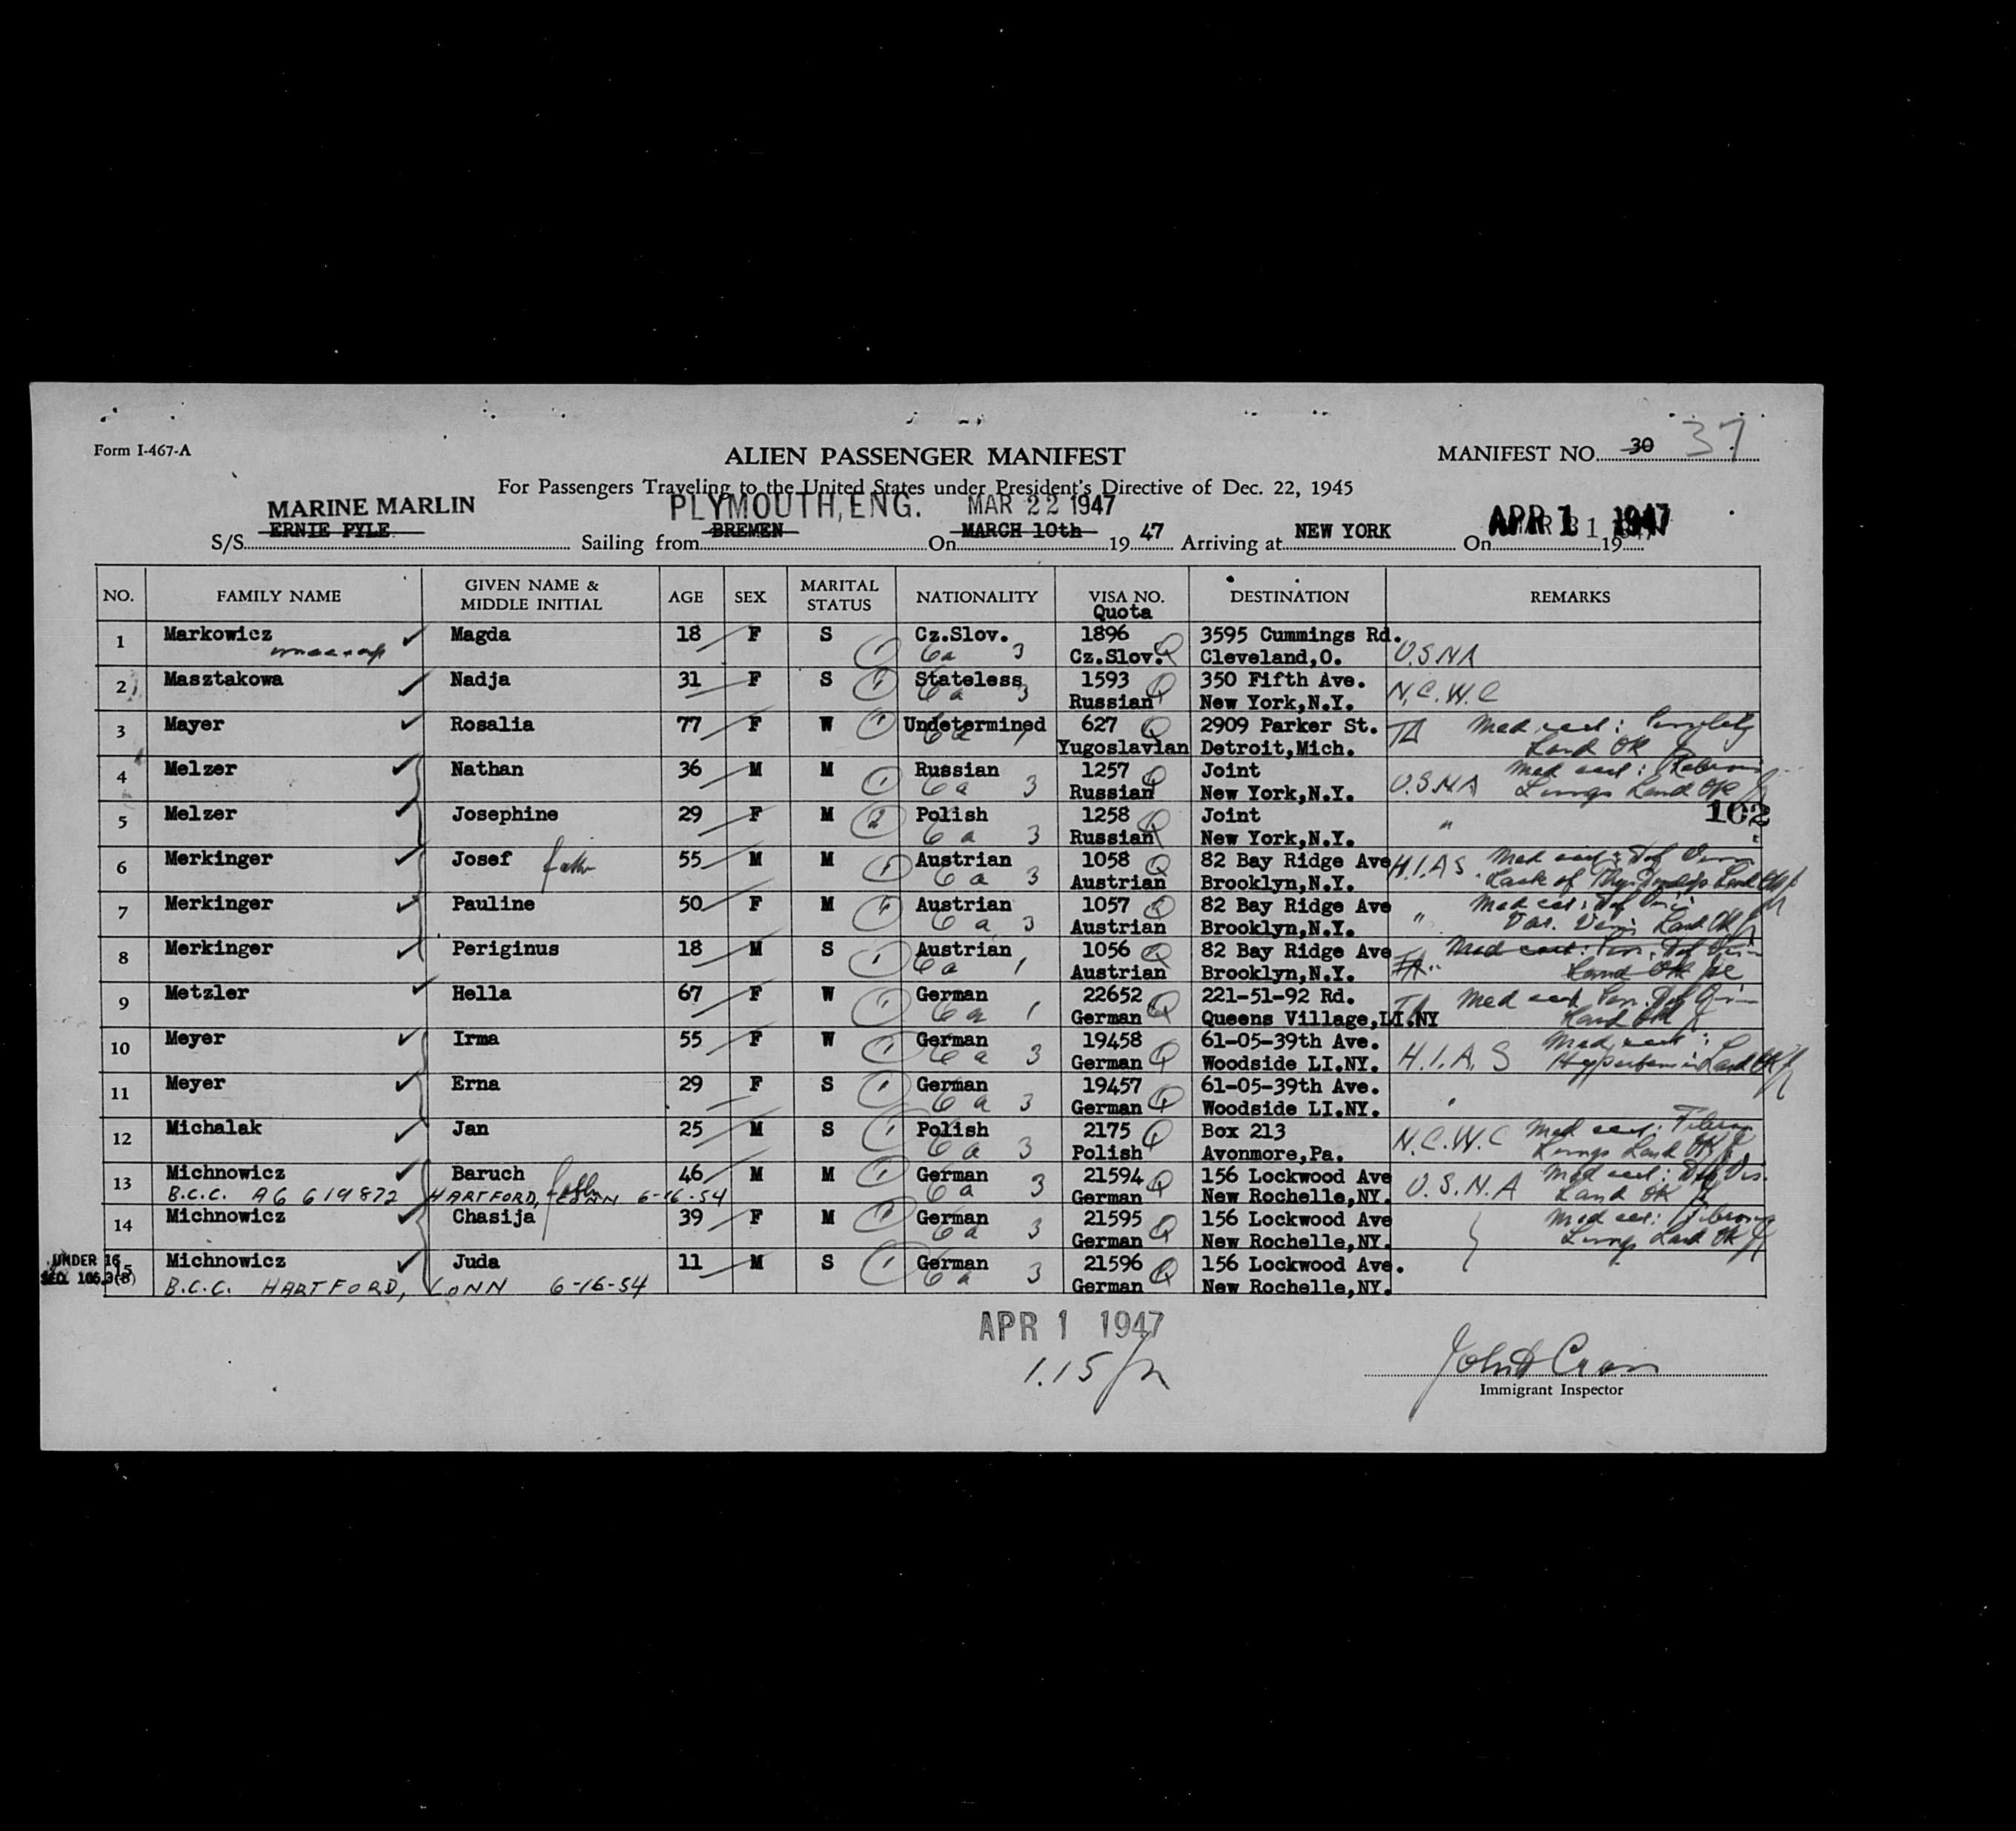 Form I-467-A
ALIEN PASSENGER MANIFEST
MANIFEST NO. 30 37
For Passengers Traveling to the United States under President's Directive of Dec. 22, 1945
MARINE MARLIN PLYMOUTH, ENG. MAR 22 1947 APR 1 1947
S/S ERNIE PYLE Sailing from BREMEN On MARCH 10th 19 47 Arriving at NEW YORK On MAR 31 19
NO. FAMILY NAME GIVEN NAME & MIDDLE INITIAL AGE SEX MARITAL STATUS NATIONALITY VISA NO. Quota DESTINATION REMARKS
1 Markowicz Magda 18 F S Cz.Slov. 1896 3595 Cummings Rd.
6a 3 Cz.Slov. Q Cleveland,O. U.S.N.A
2 Masztakowa Nadja 31 F S Stateless 1593 Q 350 Fifth Ave.
6a 3 Russian New York,N.Y. N.C.W.C
3 Mayer Rosalia 77 F W Undetermined 627 Q 2909 Parker St. Med cert: Senility
6a 1 Yugoslavian Detroit,Mich. Land OK
4 Melzer Nathan 36 M M Russian 1257 Q Joint Med cert:
6a 3 Russian New York,N.Y. U.S.N.A Lungs Land OK
5 Melzer Josephine 29 F M 2 Polish 1258 Q Joint 102
6a 3 Russian New York,N.Y. "
6 Merkinger Josef 55 M M Austrian 1058 Q 82 Bay Ridge Ave H.I.A.S. Med cert: Def
6a 3 Austrian Brooklyn,N.Y. Lack of Land OK
7 Merkinger Pauline 50 F M Austrian 1057 Q 82 Bay Ridge Ave Med cert: Def
6a 3 Austrian Brooklyn,N.Y. " Var. Veins Land OK
8 Merkinger Periginus 18 M S Austrian 1056 Q 82 Bay Ridge Ave Med cert: Def
6a 1 Austrian Brooklyn,N.Y. Land OK
9 Metzler Hella 67 F W German 22652 Q 221-51-92 Rd. Med cert Sen. Def
6a 1 German Queens Village,LI.NY Land OK
10 Meyer Irma 55 F W German 19458 61-05-39th Ave. Med cert:
6a 3 German Q Woodside LI.NY. H.I.A.S Land OK
11 Meyer Erna 29 F S German 19457 61-05-39th Ave.
6a 3 German Q Woodside LI.NY.
12 Michalak Jan 25 M S Polish 2175 Q Box 213 Med cert:
6a 3 Polish Avonmore,Pa. N.C.W.C Lungs Land OK
13 Michnowicz Baruch 46 M M German 21594 Q 156 Lockwood Ave Med cert: Def Vis.
B.C.C. A6 619872 HARTFORD, CONN 6-16-54 6a 3 German New Rochelle,NY. U.S.N.A Land OK
14 Michnowicz Chasija 39 F M German 21595 Q 156 Lockwood Ave Med cert:
6a 3 German New Rochelle,NY. Lungs Land OK
UNDER 16
15 Michnowicz Juda 11 M S German 21596 156 Lockwood Ave.
SEC. 106.3(B)
B.C.C. HARTFORD, CONN 6-16-54 6a 3 German Q New Rochelle,NY.
APR 1 1947
1.15
Immigrant Inspector